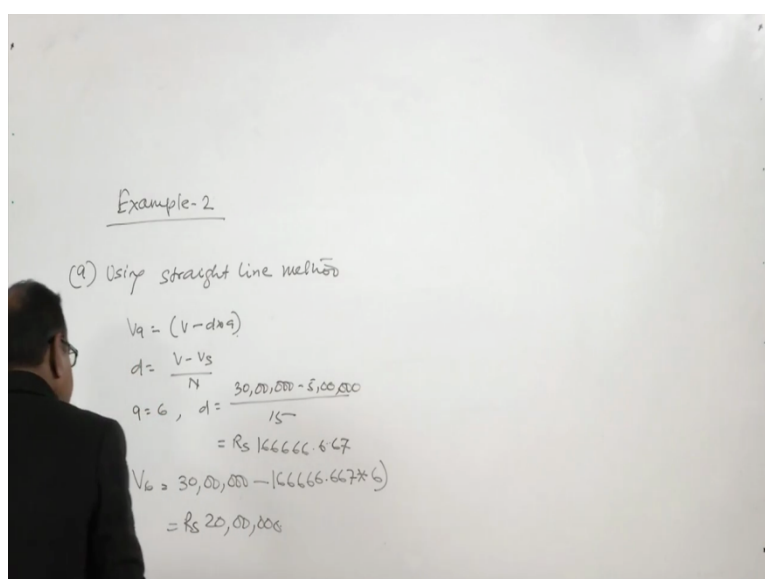 Example-2
(a) Using straight line method
Va = (V-d*a)
d = V-Vs / N
a=6, d = 30,00,000-5,00,000 / 15
= Rs 166666.667
V6 = 30,00,000 - 166666.667*6)
= Rs 20,00,000